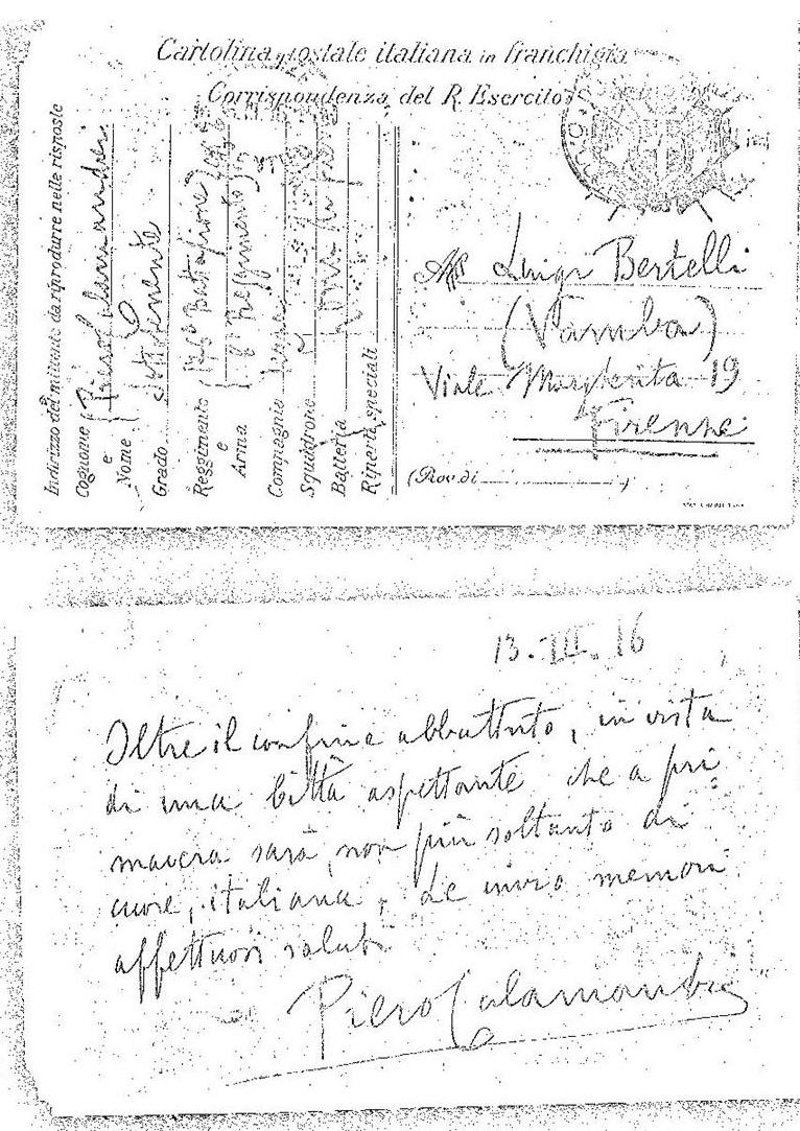 Cartolina postale italiana in franchigia
Corrispondenza del R. Esercito
Indirizzo del mittente da riprodurre nelle risposte
Cognome Piero Calamandrei
e
Nome
Grado Sottotenente
Reggimento Battaglione
e
Arma Reggimento
Compagnia
Squadrone
Batteria
Riparti speciali
Luigi Bertelli
(Vamba)
Viale Margherita 19
Firenze
(Prov. di )
13.III.16
Oltre il confine abbattuto, in vista
di una Città aspettante che a pri
mavera sarà, non più soltanto di
cuore, italiana, Le invio memori
affettuosi saluti
Piero Calamandrei